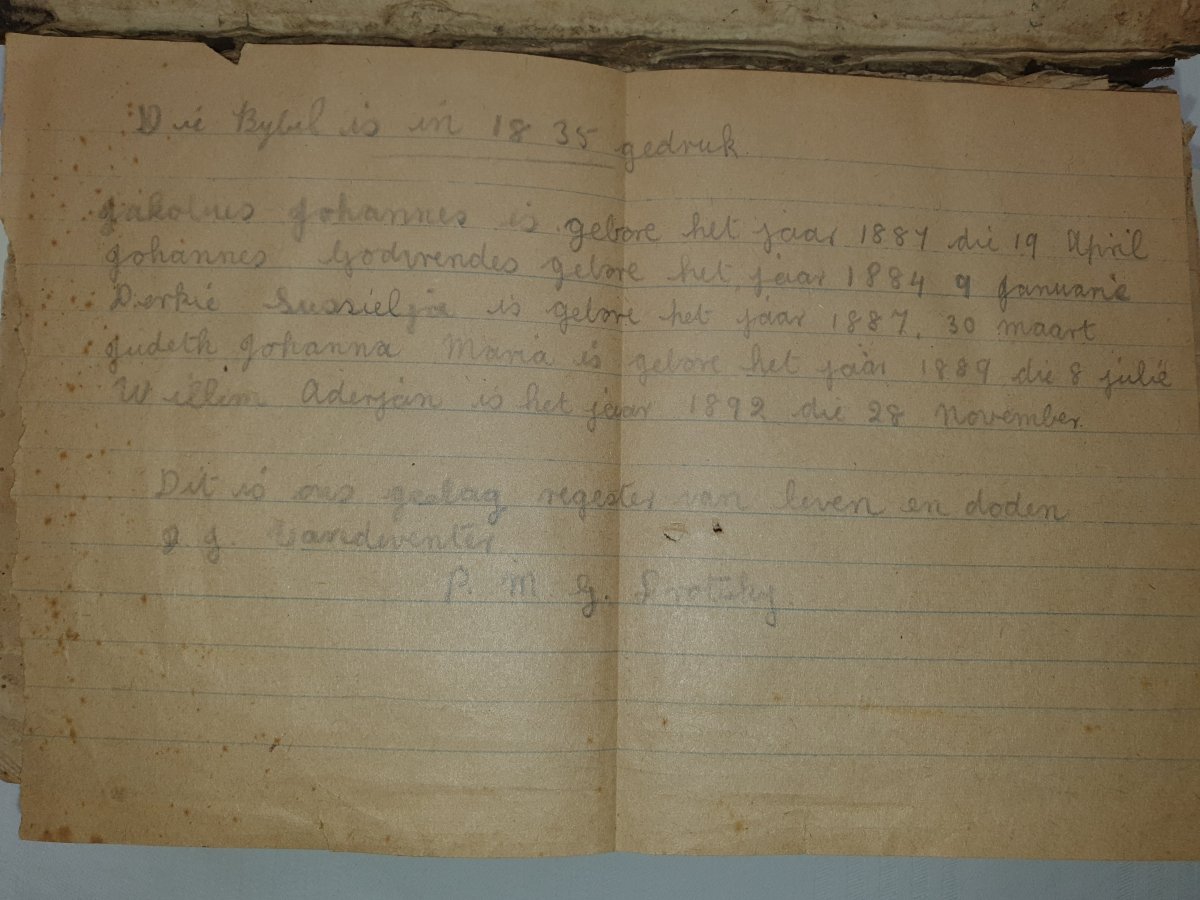 Die Bybel is in 1835 gedruk
Jakobus Johannes is gebore het jaar 1881 die 19 April
Johannes gebore het jaar 1884 9 Januarie
Derkie is gebore het jaar 1887. 30 maart
Judeth Johanna Maria is gebore het jaar 1889 die 8 julie
Willem Aderjan is het jaar 1892 die 28 November.
Dit is ons geslag regester van leven en doden
J. J. Vandeventer
P. M. G. Grotsky.